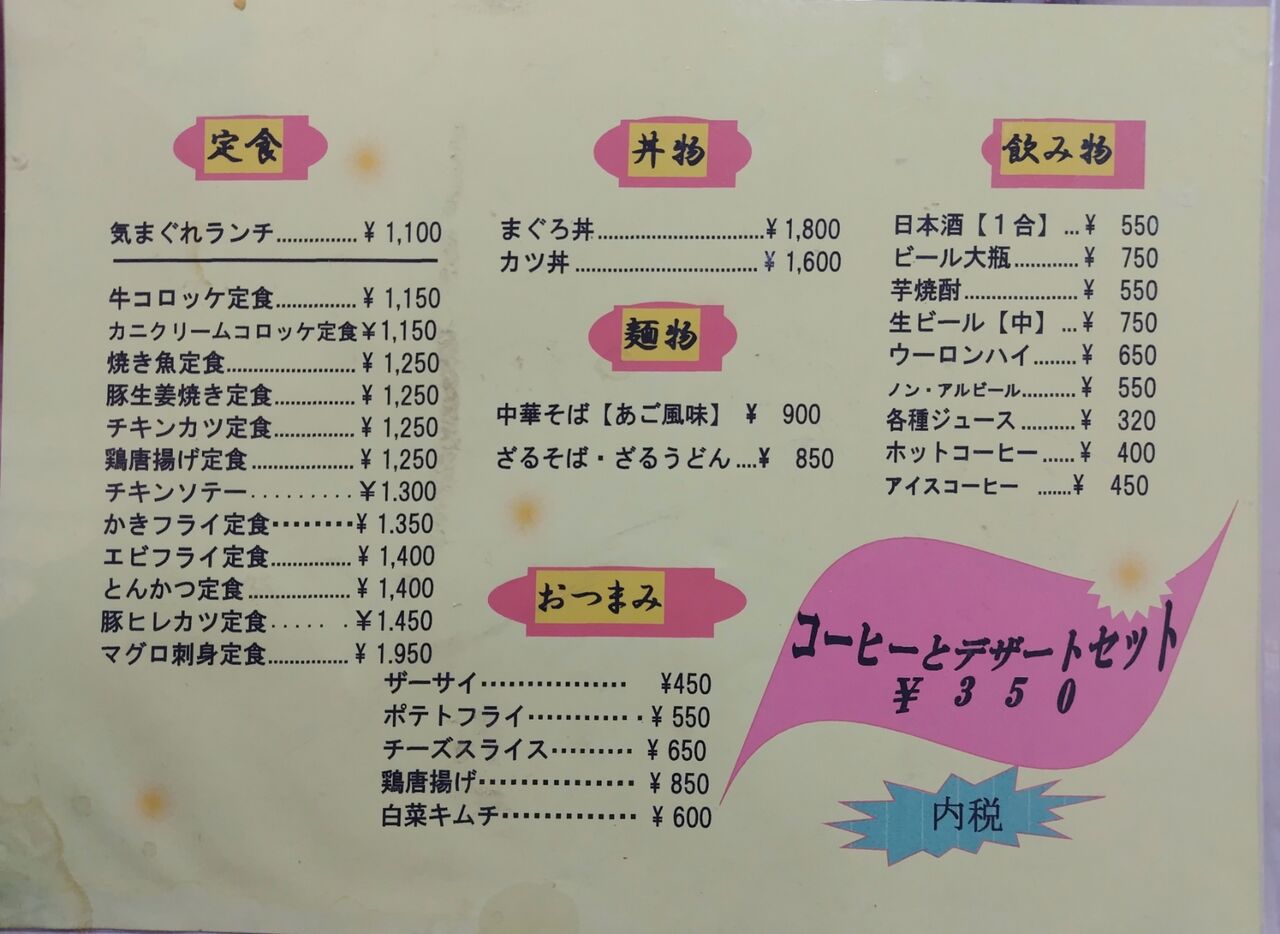 定食
気まぐれランチ..............¥ 1,100
牛コロッケ定食..............¥ 1,150
カニクリームコロッケ定食¥1,150
焼き魚定食......................¥ 1,250
豚生姜焼き定食..............¥ 1,250
チキンカツ定食..............¥ 1,250
鶏唐揚げ定食..................¥ 1,250
チキンソテー.........¥1.300
かきフライ定食････････¥ 1.350
エビフライ定食..............¥ 1,400
とんかつ定食..................¥ 1,400
豚ヒレカツ定食..... .¥1.450
マグロ刺身定食..............¥ 1.950
丼物
まぐろ丼.............................¥ 1,800
カツ丼................................¥ 1,600
麺物
中華そば【あご風味】 ¥ 900
ざるそば・ざるうどん....¥ 850
おつまみ
ザーサイ････････････････ ¥450
ポテトフライ････････････¥ 550
チーズスライス･････････ ¥ 650
鶏唐揚げ････････････････ ¥ 850
白菜キムチ･･････････････ ¥ 600
飲み物
日本酒【1合】...¥ 550
ビール大瓶...........¥ 750
芋焼酎....................¥ 550
生ビール【中】...¥ 750
ウーロンハイ.......¥ 650
ノン・アルビール..........¥ 550
各種ジュース..........¥ 320
ホットコーヒー......¥ 400
アイスコーヒー ......¥ 450
コーヒーとデザートセット
¥350
内税